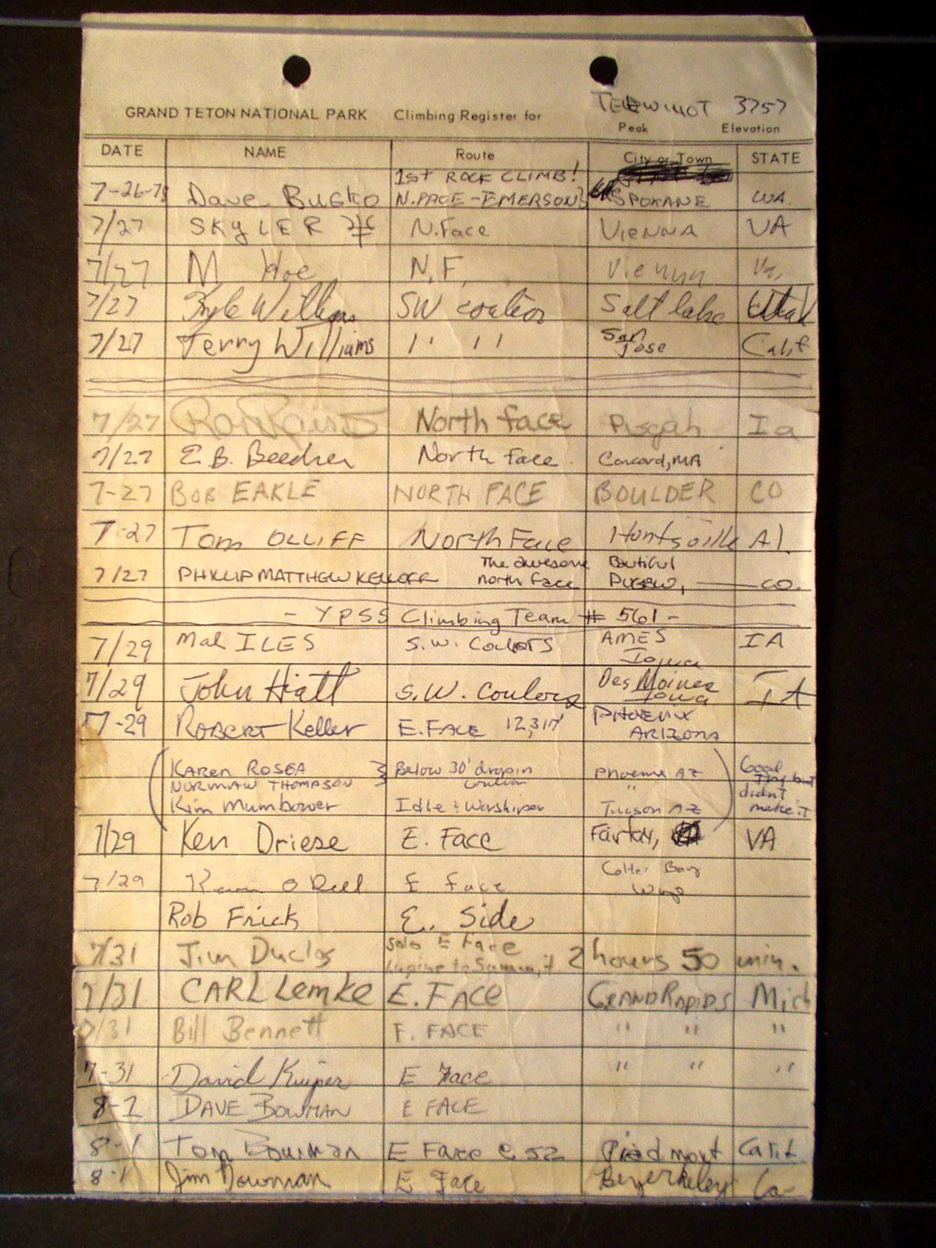 GRAND TETON NATIONAL PARK Climbing Register for TEEWINOT 3757
Peak Elevation
DATE NAME Route City or Town STATE
1st ROCK CLIMB!
7-26-78 Dave Busko N.FACE-EMERSON'S SPOKANE WA.
7/27 SKYLER N.Face VIENNA VA
7/27 M. N.F. Vienna Va.
7/27 Kyle Williams SW couliors Salt lake Utah
7/27 Terry Williams " " San Jose Calif
7/27 North face Pisgah Ia
7/27 E.B. Beecher North face Concord, MA
7-27 BOB EAKLE NORTH FACE BOULDER CO
7-27 Tom OLLIFF North Face Huntsville Al.
7/27 PHILLIP MATTHEW KELLOFF The awesome north face Bautiful PUEBLO, CO.
- YPSS Climbing Team # 561 -
7/29 Mal ILES S.W. Couloirs AMES Iowa IA
7/29 John Hiatt S.W. Couloirs Des Moines Iowa IA
7-29 ROBERT Keller E.FACE 12,317' PHOENIX ARIZONA
(KAREN ROSEA } Below 30' drop in Phoenix AZ ) Good
NORMAN THOMPSON couloir " Try but didn't
Kim Mumbower Idle : Worshiper Tucson AZ make it
7/29 Ken Driese E. Face Fairfax, VA
7/29 E face Colter Bay Wyo
Rob Frick E. Side
7/31 Jim Duclos Solo E Face Lupine to Summit 2 hours 50 min.
7/31 CARL Lemke E. FACE GRAND RAPIDS Mich
7/31 Bill Bennett E. FACE " " "
7-31 David Kuiper E Face " " "
8-1 DAVE BOWMAN E FACE
8-1 Tom Bowman E Face Piedmont Calif
8-1 Jim Bowman E Face Beyerkeley Ca